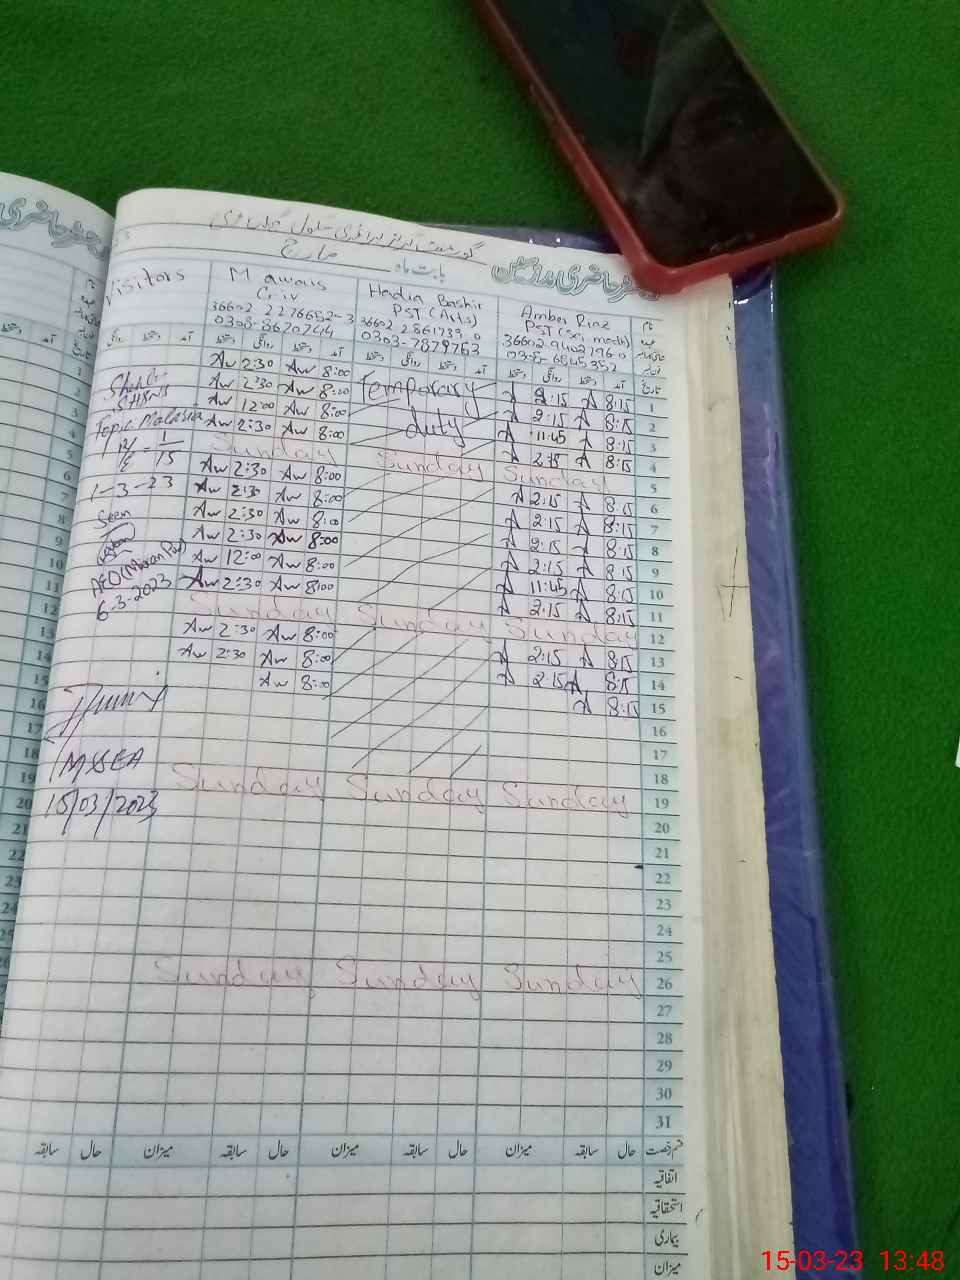 رجسٹر حاضری مدرسین
بابت ماہ مارچ
گورنمنٹ گرلز پرائمری سکول
Visitors
M awais
C-iv
0308-8670744
Hadia Bashir
PST (Arts)
0303-7879763
Amber Riaz
PST (Sci math)
دستخط روانگی دستخط آمد
Aw 2:30 Aw 8:00 Temporary A 2:15 A 8:15 1
Aw 2:30 Aw 8:00 A 2:15 A 8:15 2
Aw 12:00 Aw 8:00 duty A 11:45 A 8:15 3
Topic. Malaria Aw 2:30 Aw 8:00 A 2:15 A 8:15 4
Sunday Sunday Sunday 5
Aw 2:30 Aw 8:00 A 2:15 A 8:15 6
1-3-23 Aw 2:30 Aw 8:00 A 2:15 A 8:15 7
Seen Aw 2:30 Aw 8:00 A 2:15 A 8:15 8
Aw 2:30 Aw 8:00 A 2:15 A 8:15 9
AEO Aw 12:00 Aw 8:00 A 11:45 A 8:15 10
6-3-2023 Aw 2:30 Aw 8:00 A 2:15 A 8:15 11
Sunday Sunday Sunday 12
Aw 2:30 Aw 8:00 A 2:15 A 8:15 13
Aw 2:30 Aw 8:00 A 2:15 A 8:15 14
Aw 8:00 A 8:15 15
16
17
MSEA 18
15/03/2023 Sunday Sunday Sunday 19
20
21
22
23
24
25
Sunday Sunday Sunday 26
27
28
29
30
31
قسم رخصت حال سابقہ میزان حال سابقہ میزان حال سابقہ میزان حال سابقہ
اتفاقیہ
استحقاقیہ
بیماری
میزان
15-03-23 13:48